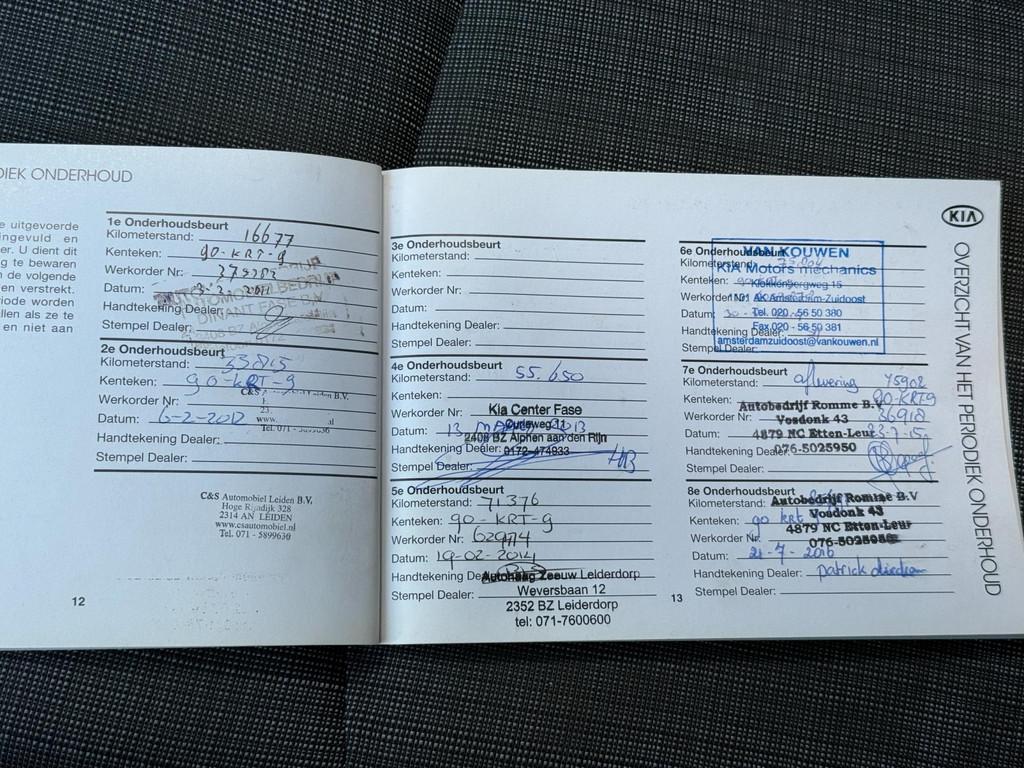 DIEK ONDERHOUD
e uitgevoerde
ingevuld en
er. U dient dit
g te bewaren
n de volgende
en verstrekt.
riode worden
llen als ze te
en niet aan
1e Onderhoudsbeurt
Kilometerstand: 16677
Kenteken: 90-KRT-9
Werkorder Nr:
Datum: 3-2-2011
Handtekening Dealer:
Stempel Dealer:
DINANT FASE B.V.
2e Onderhoudsbeurt
Kilometerstand: 33815
Kenteken: 90-KRT-9
Werkorder Nr:
Datum: 6-2-2012
Handtekening Dealer:
Stempel Dealer:
C&S Automobiel Leiden B.V.
Hoge Rijndijk 328
2314 AN LEIDEN
www.csautomobiel.nl
Tel. 071 - 5899630
12
3e Onderhoudsbeurt
Kilometerstand:
Kenteken:
Werkorder Nr:
Datum:
Handtekening Dealer:
Stempel Dealer:
4e Onderhoudsbeurt
Kilometerstand: 55.650
Kenteken:
Werkorder Nr: Kia Center Fase
Datum: 13 2013
2408 BZ Alphen aan den Rijn
Handtekening Dealer: 0172-474933
Stempel Dealer:
5e Onderhoudsbeurt
Kilometerstand: 71376
Kenteken: 90-KRT-9
Werkorder Nr: 62974
Datum: 19-02-2014
Handtekening Dealer: Autohaag Zeeuw Leiderdorp
Stempel Dealer: Weversbaan 12
2352 BZ Leiderdorp
tel: 071-7600600
6e Onderhoudsbeurt VAN KOUWEN
Kilometerstand:
KIA Motors mechanics
Kenteken: Klokkenbergweg 15
Werkorder Nr: 1101 AK Amsterdam-Zuidoost
Datum: 30 - Tel. 020 - 56 50 380
Handtekening Dealer: Fax 020 - 56 50 381
Stempel Dealer: amsterdamzuidoost@vankouwen.nl
7e Onderhoudsbeurt
Kilometerstand: aflevering 75902
Kenteken: 90-KRT9
Autobedrijf Romme B.V
Werkorder Nr: Vosdonk 43 36918
Datum: 4879 NC Etten-Leur 23-7-15
Handtekening Dealer: 076-5025950
Stempel Dealer:
8e Onderhoudsbeurt
Kilometerstand: Autobedrijf Romme B.V
Kenteken: 90 krt Vosdonk 43
4879 NC Etten-Leur
Werkorder Nr: 076-5025950
Datum: 21-7-2016
Handtekening Dealer: Patrick
Stempel Dealer:
13
KIA
OVERZICHT VAN HET PERIODIEK ONDERHOUD